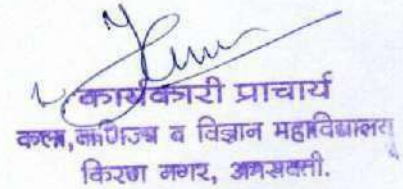 कार्यकारी प्राचार्य
कला,वाणिज्य व विज्ञान महाविद्यालय
किरण नगर, अमरावती.